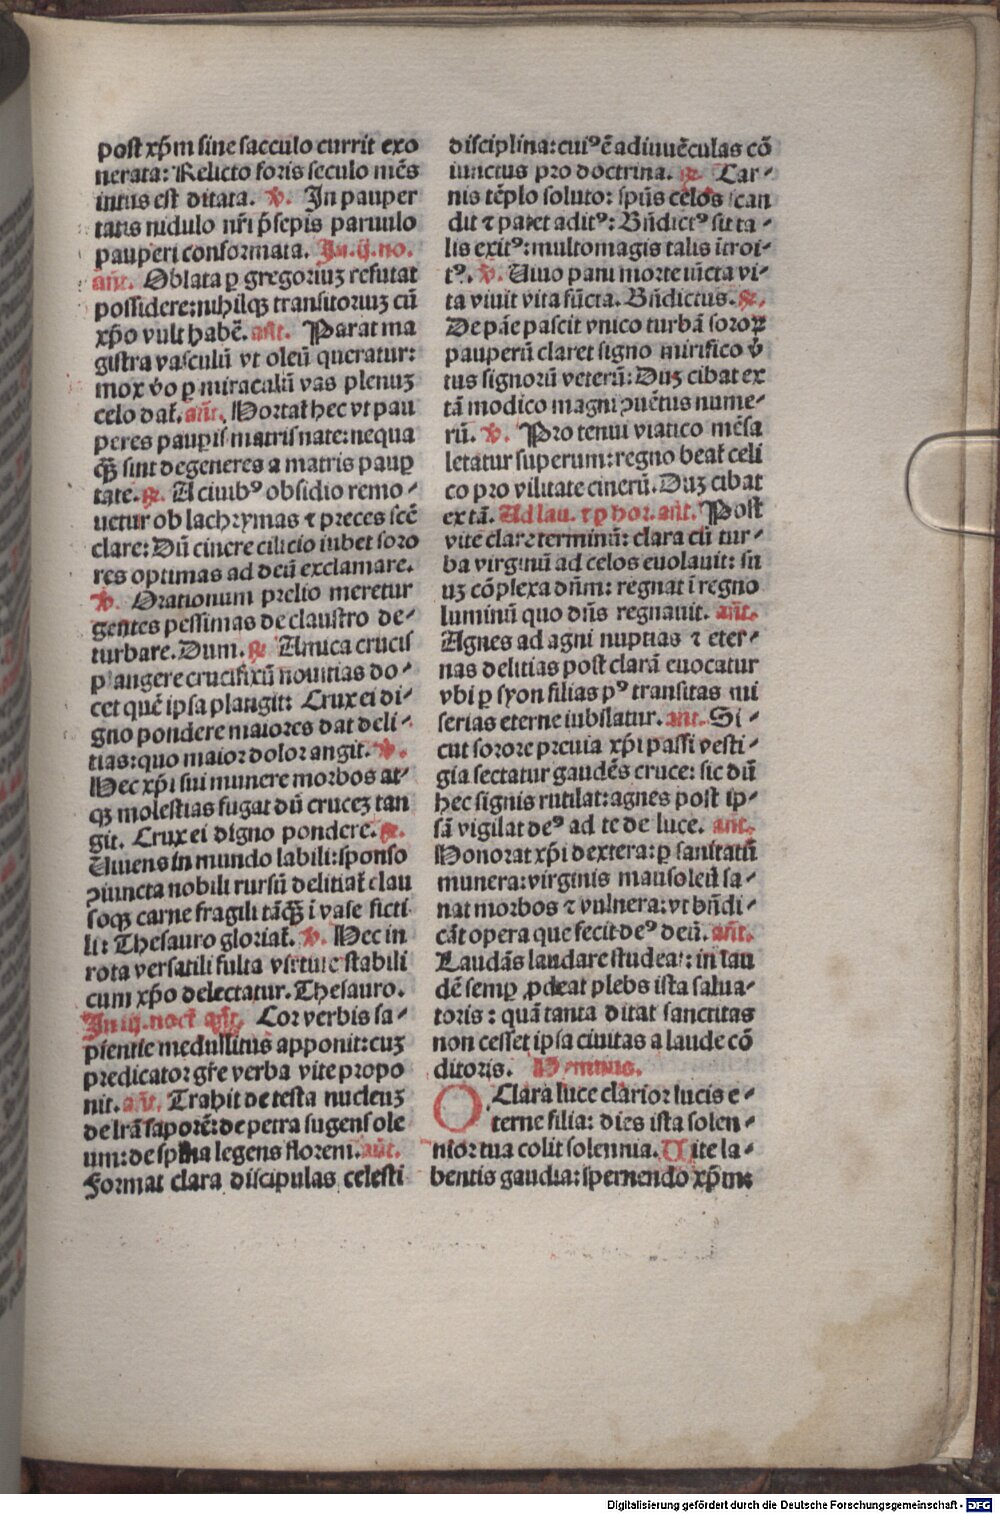 post xp̄m sine sacculo currit exo
nerata: Relicto foris seculo mēs
intus est ditata. ℣. In pauper
tatis nidulo nr̄i p̄sepis paruulo
pauperi conformata. In .ij. no.
añt. Oblata ꝑ gregoriuꝫ refutat
possidere: nihilqꝫ transitoriuꝫ cū
xp̄o vult habē. añt. Parat ma
gistra vasculū vt oleū queratur:
mox v̄o ꝑ miraculū vas plenuꝫ
celo dat̄. añt. Hortat̄ hec vt pau
peres pauꝑis matris nate: nequa
qꝫ̄ sint degeneres a matris pauꝑ
tate. ℟. A ciuibꝰ obsidio remo-
uetur ob lachrymas ⁊ preces scē
clare: Dū cinere cilicio iubet soro
res optimas ad deū exclamare.
℣. Orationum prelio meretur
gentes pessimas de claustro de-
turbare. Dum. ℟. Amica crucis
plangere crucifixū nouitias do-
cet quē ipsa plangit: Crux ei di-
gno pondere maiores dat deli-
tias: quo maior dolor angit. ℣.
Hec xp̄i sui munere morbos at-
qꝫ molestias fugat dū cruceꝫ tan
git. Crux ei digno pondere. ℟.
Viuens in mundo labili: sponso
ꝯiuncta nobili rursū delitiat̄ clau
soqꝫ carne fragili tāqꝫ̄ ī vase ficti
li: Thesauro gloriat̄. ℣. Hec in
rota versatili fulta virtute stabili
cum xp̄o delectatur. Thesauro.
In iij. noct̄ añt. Cor verbis sa-
pientie medullitus apponit: cuꝫ
predicator gr̄e verba vite propo
nit. añt. Trahit de testa nucleuꝫ
de lr̄a saporē: de petra sugens ole
um: de spina legens florem. añt.
Format clara discipulas celesti
disciplina: cuiꝰ ē adinuēculas cō
iunctus pro doctrina. ℟. Car-
nis tēplo soluto: spūs celos scan
dit ⁊ patet aditꝰ: Bn̄dictꝰ sit ta-
lis exitꝰ: multomagis talis ītroi-
tꝰ. ℣. Viuo pani morte iūcta vi-
ta viuit vita fūcta. Bn̄dictus. ℟.
De pāe pascit vnico turbā soroꝝ
pauperū claret signo mirifico v̄
tus signorū veterū: Duꝫ cibat ex
tā modico magni ꝯuētus nume-
rū. ℣. Pro tenui viatico mēsa
letatur superum: regno beat̄ celi
co pro vilitate cinerū. Duꝫ cibat
ex tā. Ad lau. ⁊ ꝑ hor. añt. Post
vite clare terminū: clara cū tur-
ba virginū ad celos euolauit: su
uꝫ cōplexa dn̄m: regnat ī regno
luminū quo dn̄s regnauit. añt.
Agnes ad agni nuptias ⁊ eter-
nas delitias post clarā euocatur
vbi ꝑ syon filias pꝰ transitas mi
serias eterne iubilatur. añt. Si-
cut sorore preuia xp̄i passi vesti-
gia sectatur gaudēs cruce: sic dū
hec signis rutilat: agnes post ip-
sā vigilat deꝰ ad te de luce. añt.
Honorat xp̄i dextera: ꝑ sanitatū
munera: virginis mausoleū sa-
nat morbos ⁊ vulnera: vt bn̄di-
cāt opera que fecit deꝰ deū. añt.
Laudās laudare studeat: in lau
dē semꝑ ꝓdeat plebs ista salua-
toris: quā tanta ditat sanctitas
non cesset ipsa ciuitas a laude cō
ditoris. Hymnus.
O Clara luce clarior lucis e-
terne filia: dies ista solen-
nior tua colit solennia. Vite la-
bentis gaudia: spernendo xp̄im
Digitalisierung gefördert durch die Deutsche Forschungsgemeinschaft - DFG